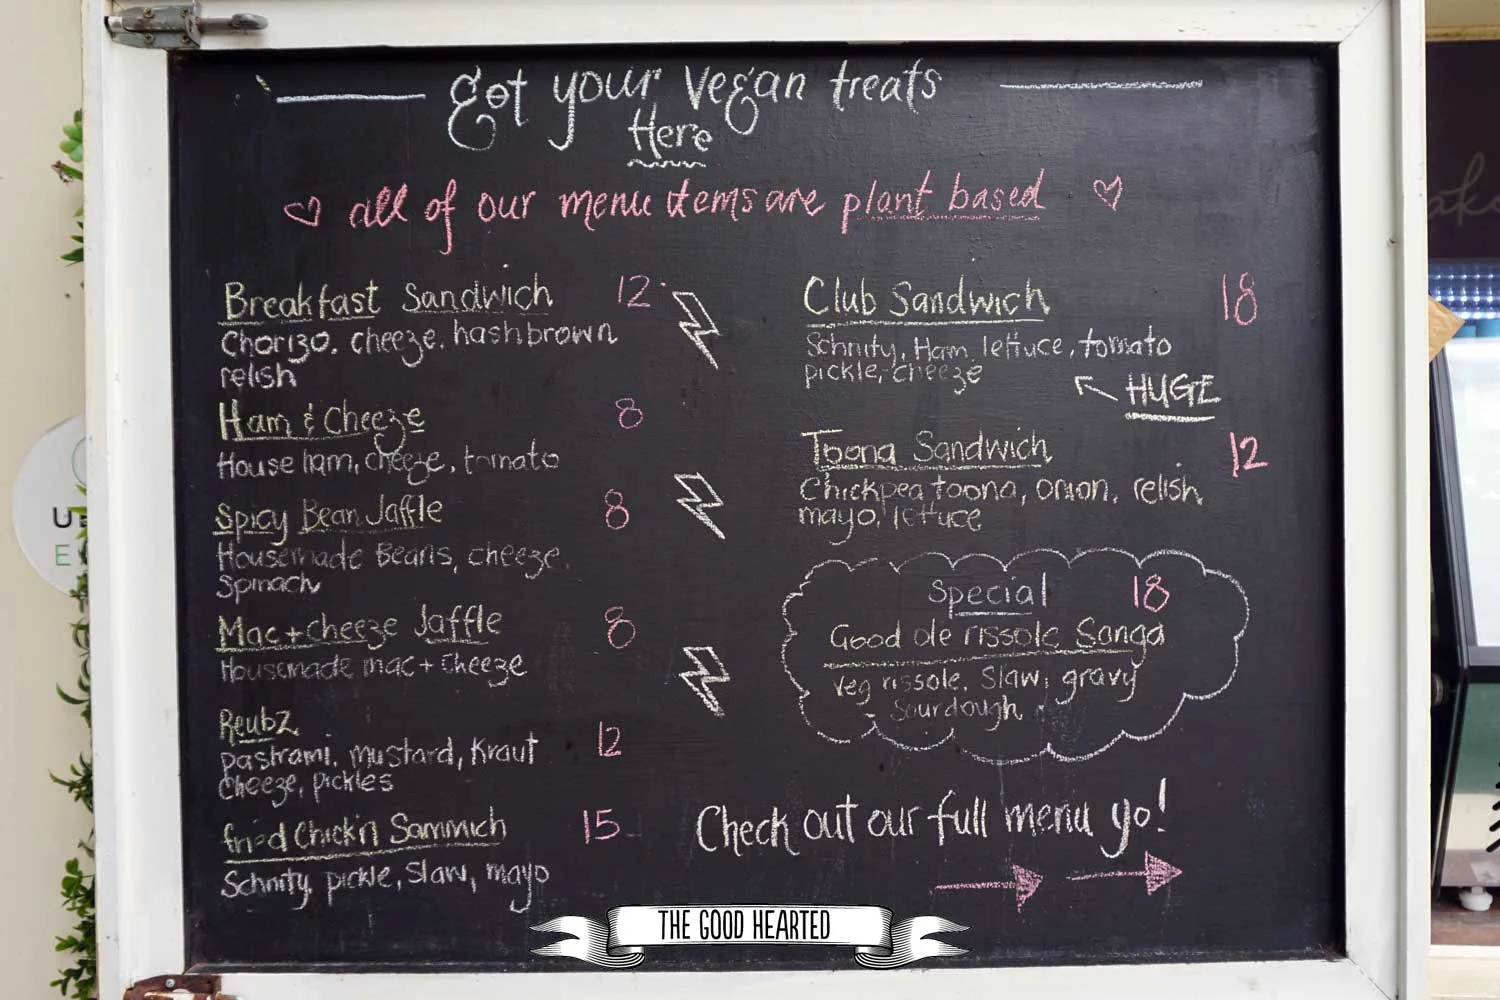 Get your vegan treats
Here
all of our menu items are plant based
Breakfast Sandwich 12
Chorizo, cheeze, hashbrown
relish
Ham & Cheeze 8
House ham, cheeze, tomato
Spicy Bean Jaffle 8
Housemade Beans, cheeze,
Spinach
Mac + cheeze Jaffle 8
Housemade mac + cheeze
ReubZ 12
pastrami, mustard, Kraut
Cheeze, pickles
fried Chick'n Sammich 15
Schnity, pickle, Slaw, mayo
Club Sandwich 18
Schnity, Ham, lettuce, tomato
pickle, cheeze
HUGE
Toona Sandwich 12
Chickpea toona, onion, relish
mayo, lettuce
Special 18
Good ole rissole Sanga
veg rissole, Slaw, gravy
Sourdough
Check out our full menu yo!
THE GOOD HEARTED
U
E